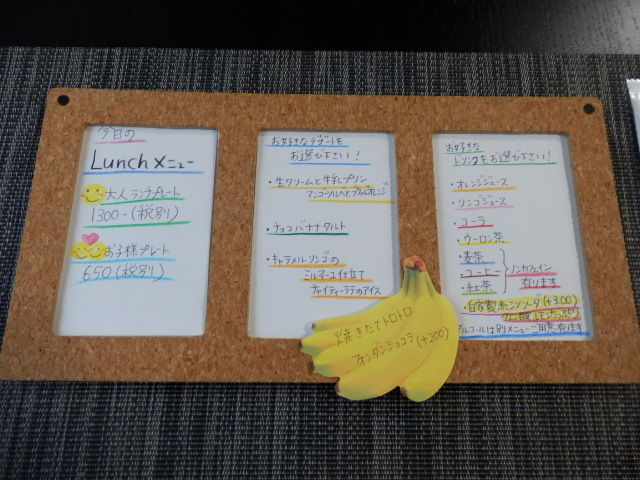 今日の
Lunchメニュー
大人ランチプレート
1300-(税別)
お子様プレート
650(税別)
お好きなデザートを
お選び下さい!
・生クリームと牛乳プリン
マンゴソルベとブラッドオレンジ
・チョコバナナタルト
・キャラメルリンゴの
ミルフィーユ仕立て
チャイティーラテのアイス
焼きたてトロトロ
フォンダンショコラ
(+200)
お好きな
ドリンクをお選び下さい!
・オレンジジュース
・リンゴジュース
・コーラ
・ウーロン茶
・麦茶
・コーヒー
・紅茶
ノンカフェイン
有ります
・自家製ジンジャーソーダ(+300)
アルコールは別メニューご用意有ります